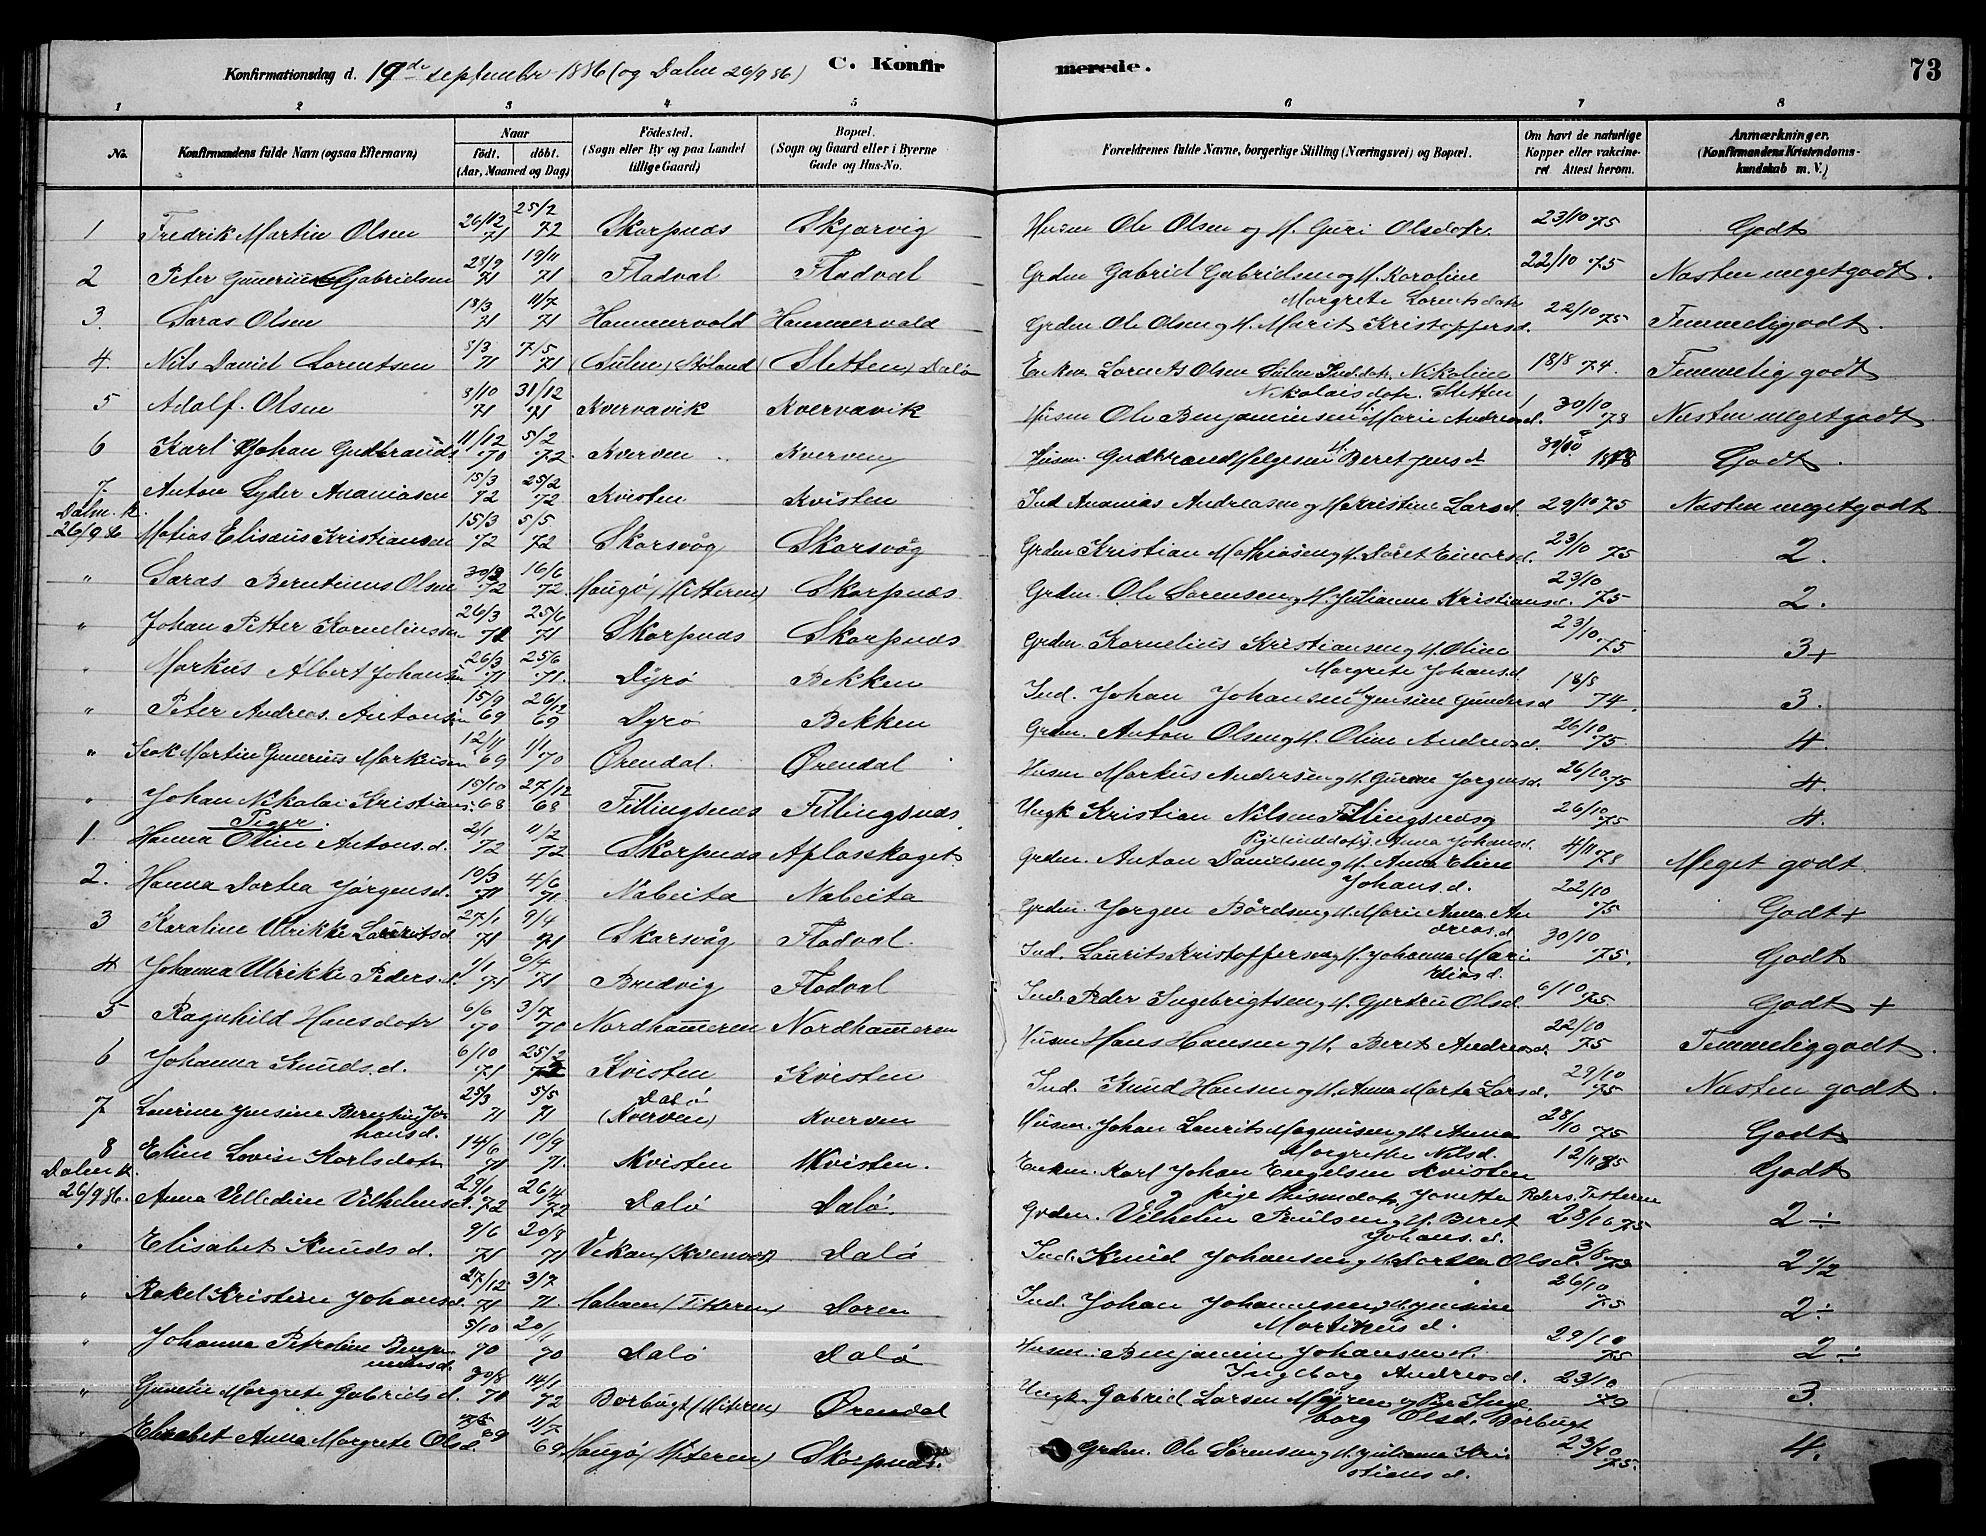 Konfirmationsdag d. 19de september 1886 (og Dalen 26/9 86)
C. Konfirmerede.
73
1 2 3 4 5 6 7 8
No. Konfirmandens fulde Navn (ogsaa Efternavn) Naar født. døbt. (Aar, Maaned og Dag) Födested. (Sogn eller By og paa Landet tillige Gaard) Bopæl. (Sogn og Gaard eller i Byerne Gade og Hus-No. Forældrenes fulde Navne, borgerlige Stilling (Næringsvei) og Bopæl. Om havt de naturlige Kopper eller vakcineret Attest herom. Anmærkninger. (Konfirmandens Kristendomskundskab m. V.)
1 Fredrik Martin Olsen 26/12 71 25/2 72 Skarpnæs Skjærvig Husm Ole Olsen og H. Guri Olsdotr. 23/10 75 Godt
2 Peter Gunerius Gabrielsen 28/9 71 19/11 71 Fladval Fladval Grdm Gabriel Gabrielsen og H. Karoline Margrete Lorentsdatr 22/10 75 Næsten meget godt.
3. Saras Olsen 18/3 71 11/7 71 Hammervold Hammervold Grdm Ole Olsen og H. Marit Kristoffersd. 22/10 75 Temmelig godt.
4. Nils Daniel Lorentsen 8/3 71 7/5 71 (Sulen) Sletten, Dalø Enkem Lorents Olsen Sulen Nikoline Nikolaisdotr. Sletten 18/8 74. Temmelig godt
5 Adolf. Olsen 8/10 71 31/12 71 Kvervavik Kvervavik Husm Ole Benjaminsen H. Marie Andreasd. 30/10 78 Næsten meget godt
6 Karl Johan Gudbrands 11/12 70 5/2 72 Kverven Kverven Husm Gudbrand Helgesen H. Beret Jensd 1878 Godt.
7. Anton Lyder Ananiasen 15/3 72 25/2 72 Kvisten Kvisten Ind Ananias Andreasen og H. Kristine Larsd. 29/10 75 Næsten meget godt
Dalm. k. 26/9 86 Matias Elisæus Kristiansen 15/3 72 5/5 72 Skarsvåg Skarsvåg Grdm Kristian Mathiasen og H. Einarsd. 23/10 75 2.
" Saras Berntinus Olsen 72 16/6 72 Haugø (Hitteren) Skarpnæs Grdm. Ole Sørensen og H. Julianna Kristiansd. 23/10 75 2.
" Johan Petter Korneliussen 26/3 71 25/6 71 Skarpnæs Skarpnæs Grdm. Kornelius Kristiansen og H. Oline Margrete Johansd 23/10 75 3+
" Markus Albert Johansen 26/3 71 25/6 71. Dyrø Bekken Ind. Johan Johansen H. Jensine Gundersd 18/8 74. 3.
" Peter Andreas. Antonsen 15/9 69 26/12 69 Dyrø Bekken Grdm. Anton Olsen og H. Oline Andreasd. 26/10 75. 4.
" Isak Martin Gunerius Markusen 12/11 69 1/1 70 Ørendal. Ørendal Husm Markus Andersen og H. Guren Jørgensd. 26/10 75 4.
" Johan Nikolai Kristians. 15/10 68 27/12 68 Fillingsnæs Fillingsnæs Ungk Kristian Nilsen Fillingsnæs og Pige Anna Johansd. 26/10 75 4.
Piger.
1. Hanna Oline Antons.d. 2/1 72 11/2 72 Skarpnæs Aplasskaget Grdm. Anton Danielsen og H. Anna Eline Johans.d. 4/11 78 Meget godt
2. Hanna Dortea Jørgensd. 10/3 71 4/6 71. Nabeita Nabeita Grdm. Jørgen Bårdsen og H. Marie Anna Andreas.d 22/10 75 Godt+
3 Karoline Ulrikke Lauritsd. 27/1 71 9/4 71 Skarsvåg Fladval. Ind. Laurits Kristoffersen og H. Johanna Marie Eliasd. 30/10 75. Godt
4 Johanna Ulrikke Peders.d. 1/1 71 6/4 71 Bredvig Fladval Ind. Peder Ingebrigtsen og H. Gjertru Olsd. 6/10 75 Godt +
5 Ragnhild Hansdotr 6/6 70 3/7 70 Nordhammeren Nordhammeren Husm Hans Hansen og H. Beret Andreasd. 22/10 75 Temmelig godt.
6 Johanna Knuds.d. 6/10 71 25/2 72 Kvisten Kvisten Ind. Knud Hansen og H. Anna Marta Larsd. 29/10 75 Næsten godt
7 Laurine Jensine Berntine Johansd. 25/3 71 5/5 71 Dalø (Kverven) Kverven Husm. Johan Laurits Magnusen og H. Anna Margrethe Nilsd. 28/10 75 Godt
8 Eline Lovise Karlsdotr 14/6 71 10/9 71. Kvisten Kvisten. Enkem. Karl Johan Engelsen Kvisten og pige Jonetta Peders. 12/11 85 Godt
Dalm k. 26/9 86. Anna Velledine Vilhelmsd. 29/1 72 26/4 72 Dalø Dalø. Grdm. Vilhelm Paulsen og H. Beret Johans.d. 28/10 75 2 ÷
" Elisabet Knuds d. 9/6 71 20/8 71 Vikan (Kvenvær) Dalø Ind. Knud Johansen og H. Dortea Olsd. 3/8 2 1/2
" Rakel Kristine Johansd. 27/12 71 3/7 71. (Hitteren) Daren Ind. Johan Johannesen og H. Jensine Martinus d. 26/10 75 2 ÷
" Johanna Petroline Benjaminsd. 5/10 70 20/11 70 Dalø Dalø Husm. Benjamin Johansen H. Ingeborg Andreasd. 29/10 75 2 ÷
" Gunelie Margrete Gabriels d. 30/8 70 14/1 72 Barbugt (Hitteren) Ørendal Ungk. Gabriel Larsen og Pige Ingeborg Olsd. Barbugt 23/10 79 3.
" Elisabet Anna Margrete Olsd. 69 11/7 69. Haugø (Hitteren) Skarpnæs. Grdm. Ole Sørensen og H. Julianna Kristians d. 23/10 75. 4.